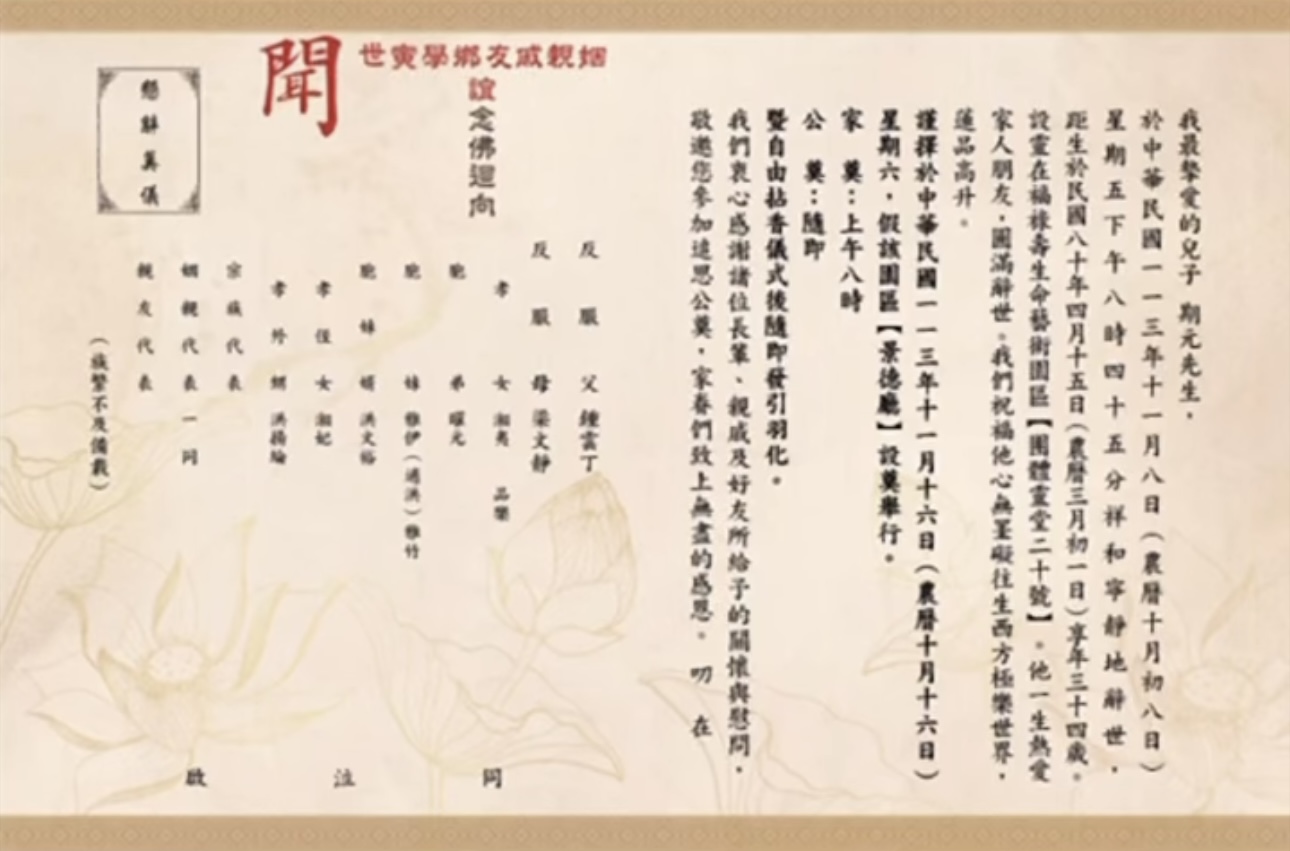 我最摯愛的兒子 期元先生，
於中華民國一一三年十一月八日（農曆十月初八日）
星期五下午八時四十五分祥和寧靜地辭世，
距生於民國八十年四月十五日（農曆三月初一日）享年三十四歲。
設靈在福祿壽生命藝術園區【團體靈堂二十號】。他一生熱愛
家人朋友，圓滿辭世。我們祝福他心無罣礙往生西方極樂世界，
蓮品高升。
謹擇於中華民國一一三年十一月十六日（農曆十月十六日）
星期六，假該園區【景德廳】設奠舉行。
家 奠：上午八時
公 奠：隨即
暨自由拈香儀式後隨即發引羽化。
我們衷心感謝諸位長輩、親戚及好友所給予的關懷與慰問，
敬邀您參加追思公奠，家眷們致上無盡的感恩。 叨 在
姻親戚友鄉學寅世
誼念佛迴向
聞
反服父 鍾雲丁
反服母 梁文靜
孝女 湘夷 品樂
胞弟 曜元
胞妹 雅伊（適洪）雅竹
胞妹婿 洪文裕
孝侄女 湘妃
孝外甥 洪揚
宗族代表
姻親代表一同
親友代表
（族繁不及備載）
同 泣 啟
懇辭奠儀